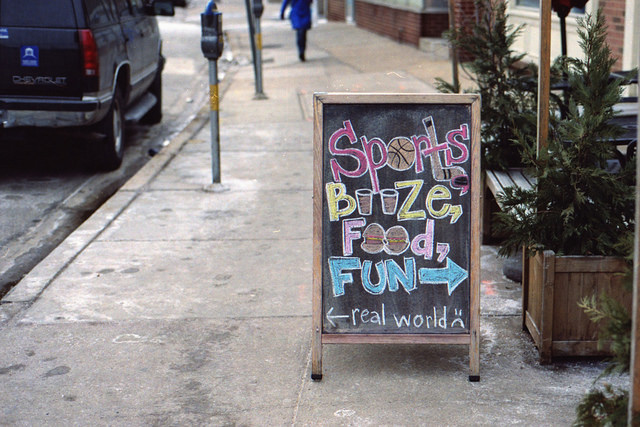 CHEVROLET
Sports
Booze,
Food,
FUN →
← real world :(